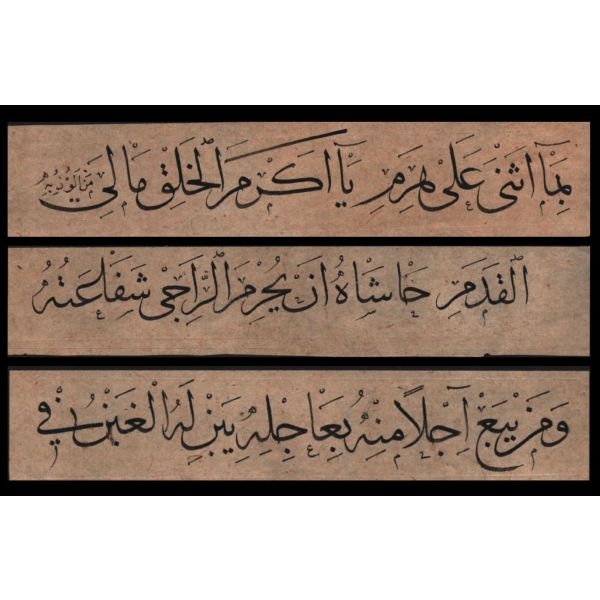 بِمَآ اَثْنٰى عَلٰى هَرِمِ يَآ اَكْرَمَ الْخَلْقِ مَالِي مَنْ اَلُوذُ بِهِ
الْقَدَمِ حَاشَاهُ اَنْ يُحْرِمَ الرَّاجِي شَفَاعَتَهُ
وَمَنْ يَبِعْ آجِلًا مِنْهُ بِعَاجِلِهِ يَبِنْ لَهُ الْغَبْنُ فِي